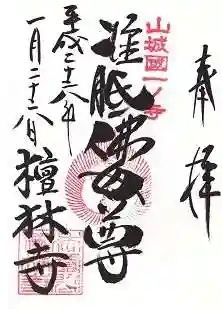 奉拝
山城國一ノ寺
准胝佛母尊
平成二十八年
一月二十六日
檀林寺